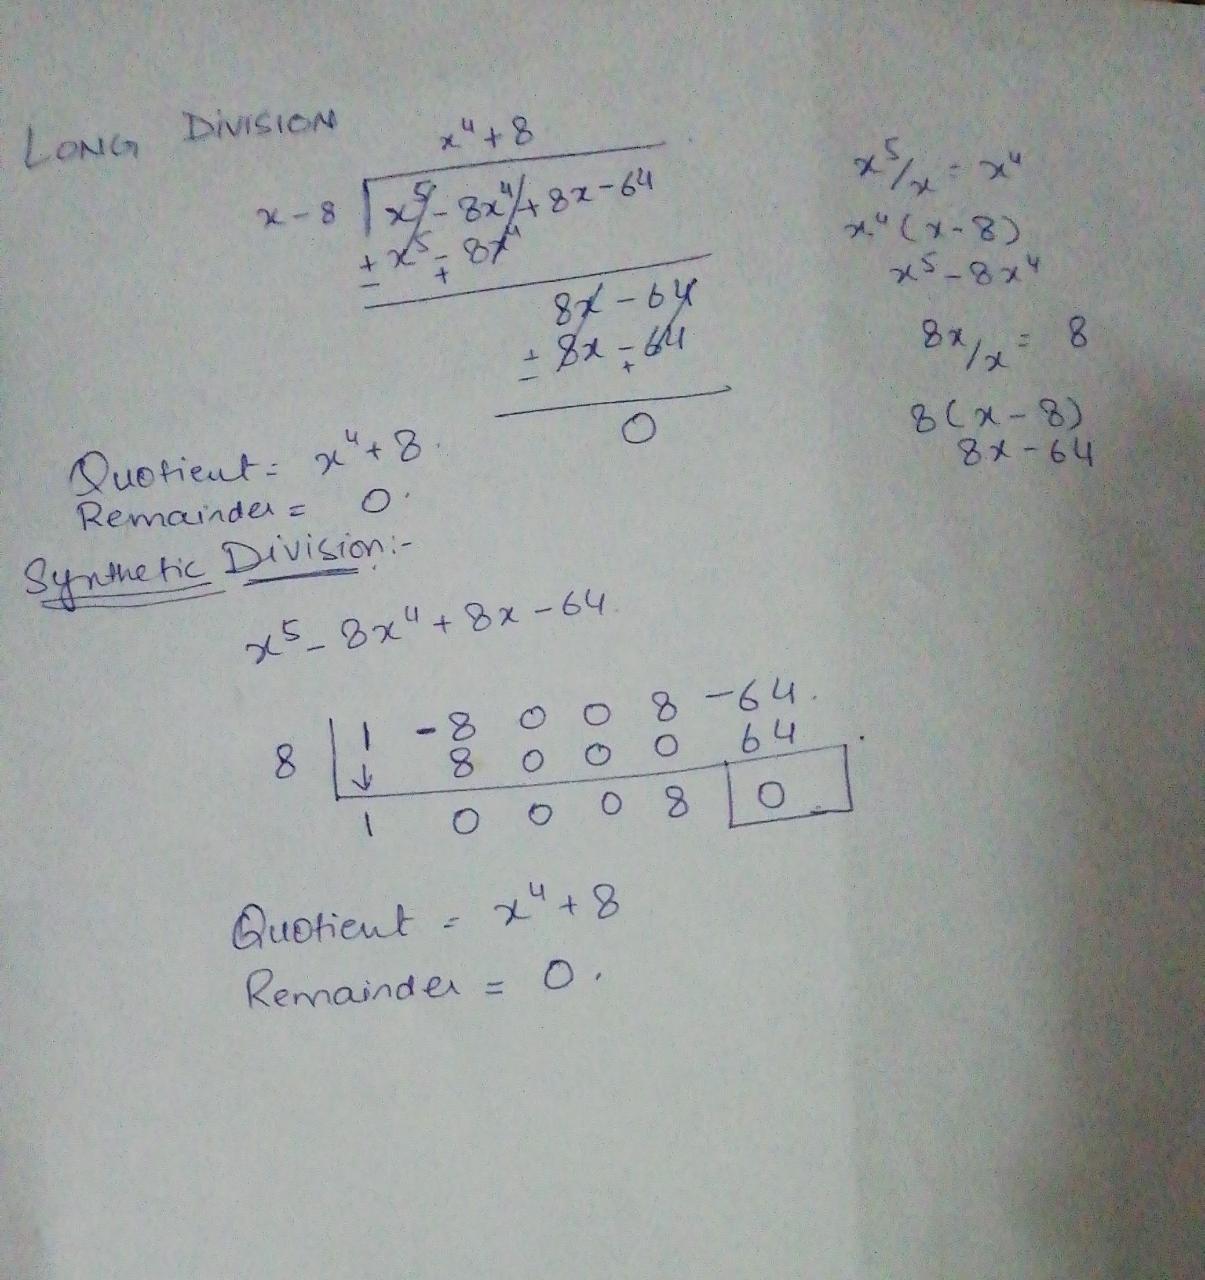 LONG DIVISION
x⁴+8
x-8 x⁵-8x⁴+8x-64
+x⁵-8x⁴
- +
8x-64
+8x-64
- +
0
x⁵/x = x⁴
x⁴(x-8)
x⁵-8x⁴
8x/x = 8
8(x-8)
8x-64
Quotient = x⁴+8.
Remainder = 0.
Synthetic Division:-
x⁵-8x⁴+8x-64.
8 1 -8 0 0 8 -64.
↓ 8 0 0 0 64
1 0 0 0 8 0
Quotient = x⁴+8
Remainder = 0.